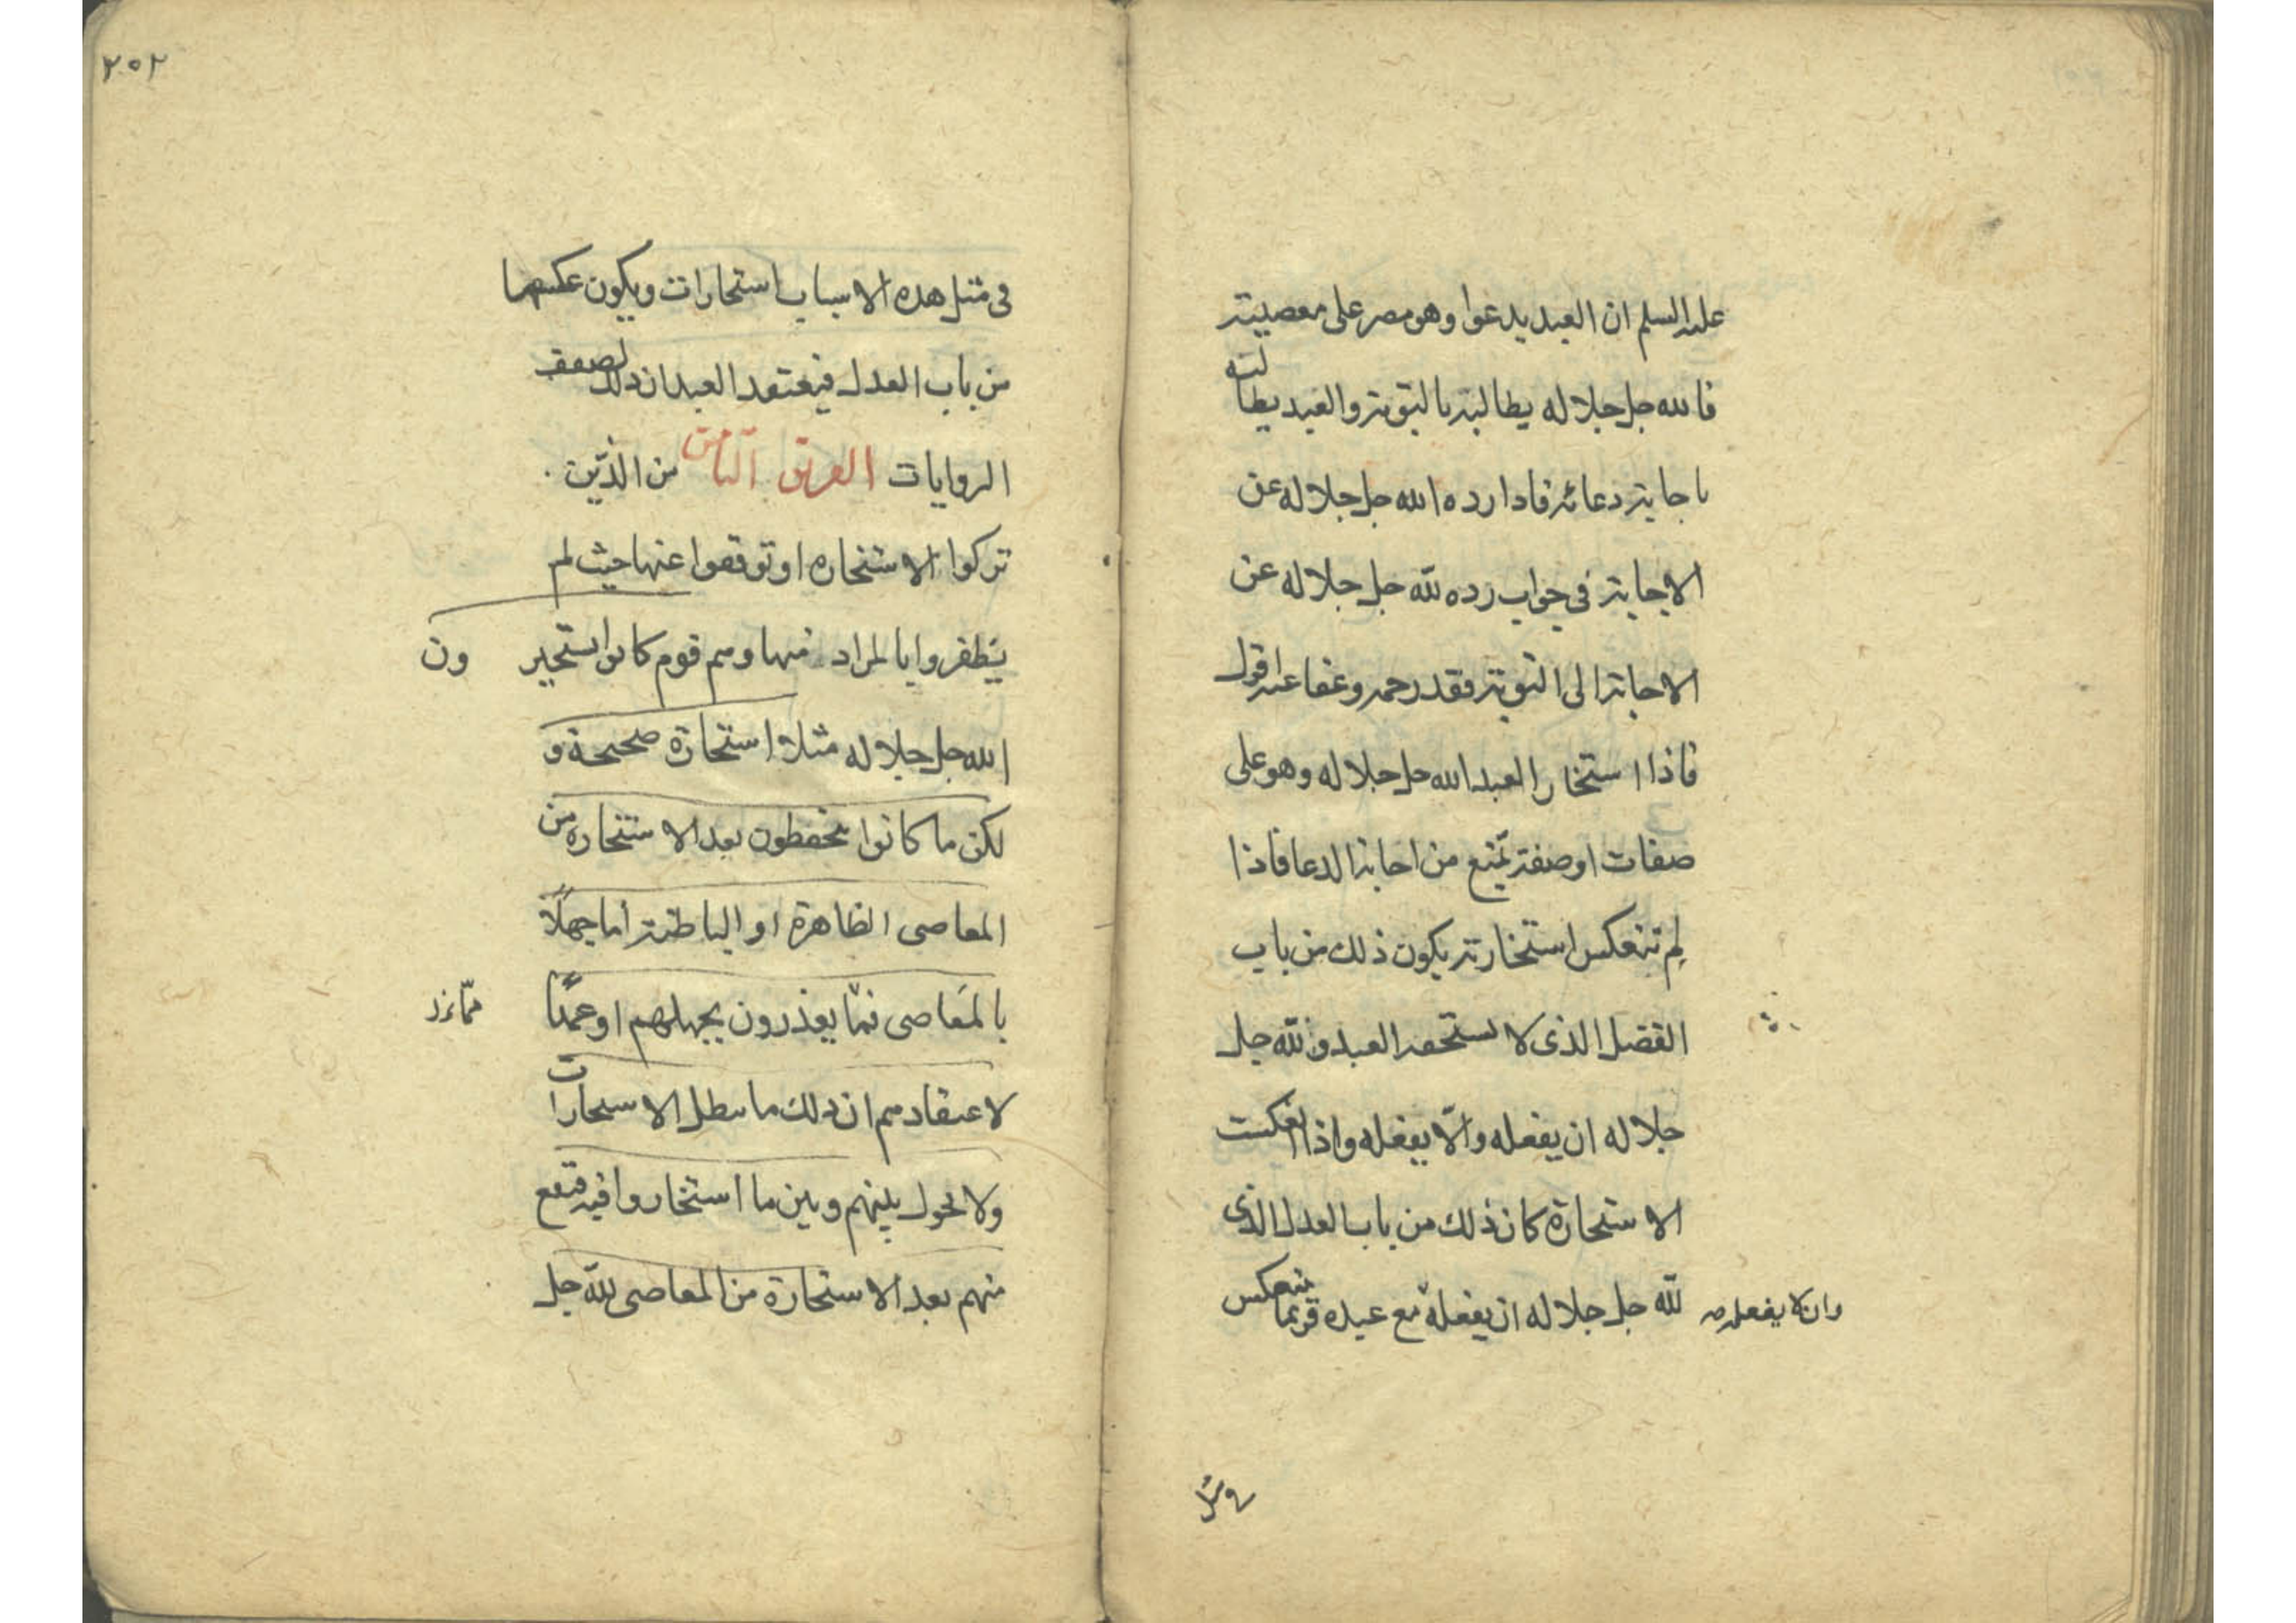 عليه السلم ان العبد يدعوا وهو مصر على معصيته
فالله جل جلاله يطالبه بالتوبة والعبد يطالبه
باجابة دعائه فاذا رده الله جل جلاله عن
الاجابة في جواب رده لله جل جلاله عن
الاجابة الى التوبة فقد رحمه وعفا عنه اقول
فاذا استخار العبد الله جل جلاله وهو على
صفات او صفة تمنع من اجابة الدعا فاذا
لم تنعكس استخارته يكون ذلك من باب
الفضل الذى لا يستحقه العبد ولله جل
جلاله ان يفعله والا يفعله واذا انعكست
الاستخارة كان ذلك من باب العدل الذى
لله جل جلاله ان يفعله مع عبده فربما تنعكس
وان لا يفعله
في مثل
٢٠٢
في مثل هذه الاسباب استخارات ويكون عكسها
من باب العدل فيعتقد العبد ان ذلك لضعف
الروايات الفريق الثامن من الذين
تركوا الاستخاره او توقفوا عنها حيث لم
يظفروا بالمراد منها وهم قوم كانوا يستخيرون
الله جل جلاله مثلا استخارة صحيحة و
لكن ما كانوا يتحفظون بعد الاستخاره من
المعاصى الظاهرة او الباطنة اما جهلا
بالمعاصى فما يعذرون بجهلهم او عمدا
لاعتقادهم ان ذلك ما يبطل الاستخارات
ولا يحول بينهم وبين ما استخاروا فيه فتقع
منهم بعد الاستخارة من المعاصى لله جل